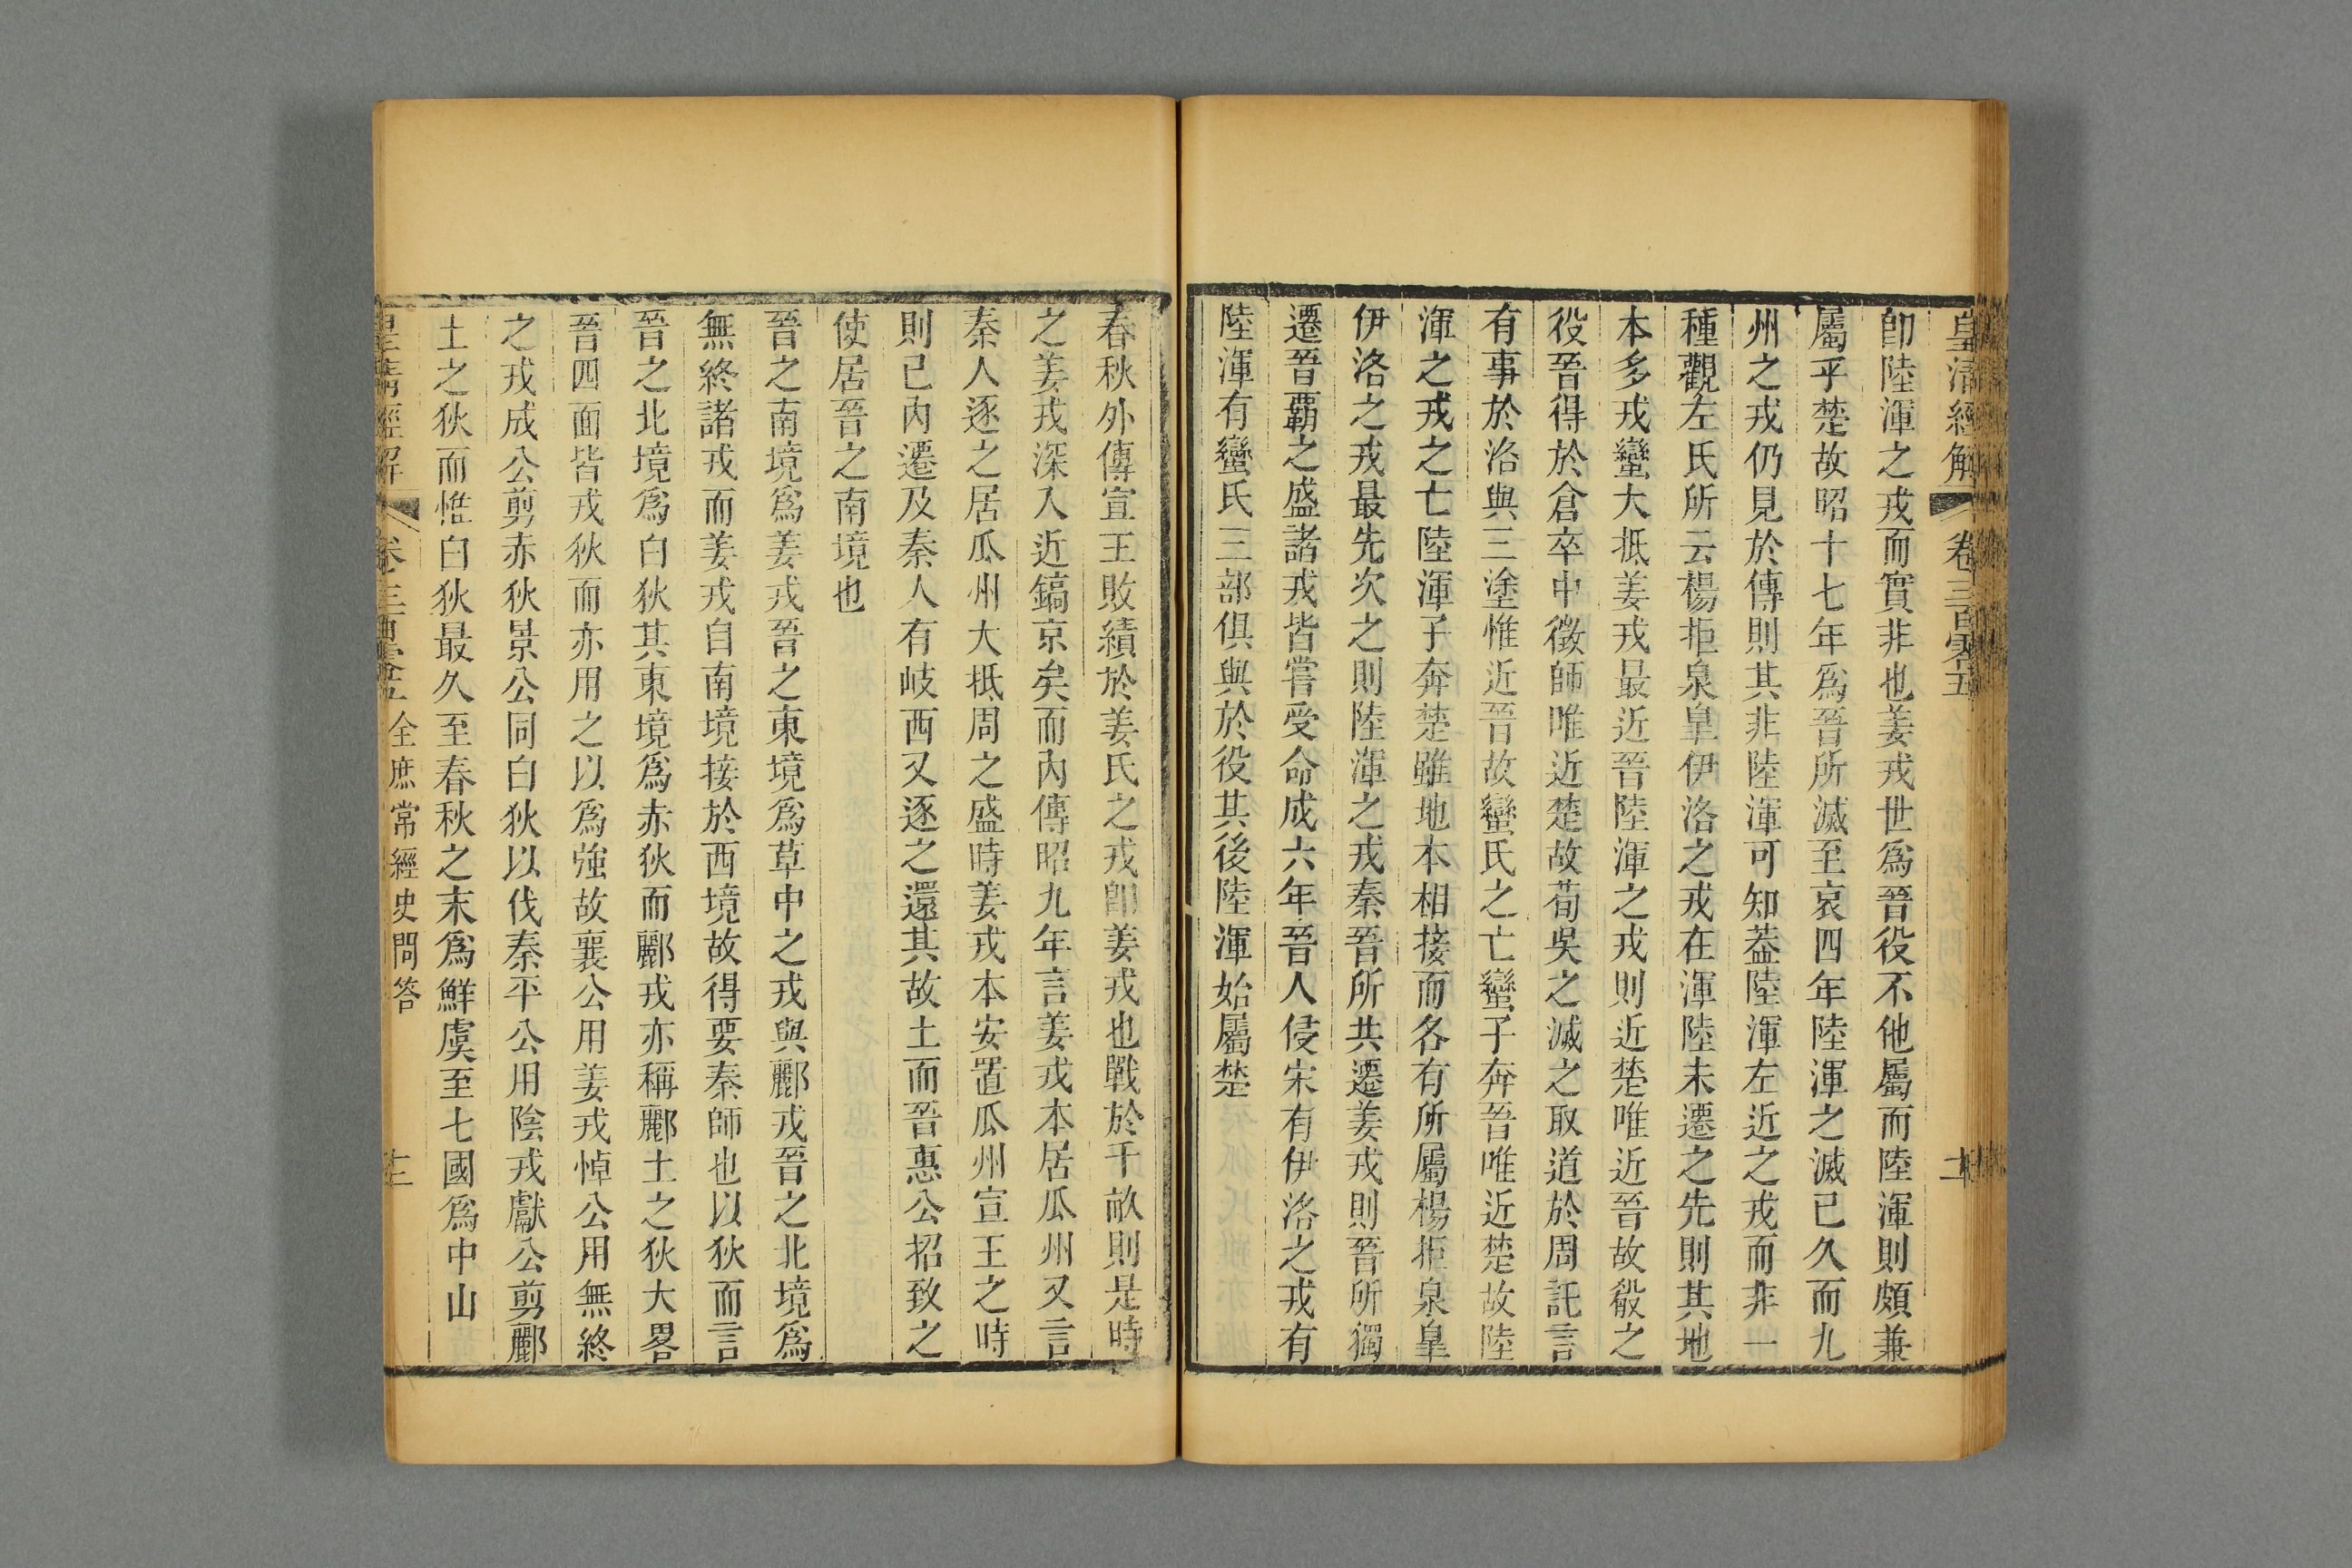 皇清經解 卷三百零五
卽陸渾之戎而實非也姜戎世爲晉役不他屬而陸渾則頗兼
屬乎楚故昭十七年爲晉所滅至哀四年陸渾之滅已久而九
州之戎仍見於傳則其非陸渾可知葢陸渾左近之戎而非一
種觀左氏所云楊拒泉皐伊洛之戎在渾陸未遷之先則其地
本多戎蠻大抵姜戎最近晉陸渾之戎則近楚唯近晉故殽之
役晉得於倉卒中徵師唯近楚故荀吳之滅之取道於周託言
有事於洛與三塗惟近晉故蠻氏之亡蠻子奔晉唯近楚故陸
渾之戎之亡陸渾子奔楚雖地本相接而各有所屬楊拒泉皐
伊洛之戎最先次之則陸渾之戎秦晉所共遷姜戎則晉所獨
遷晉霸之盛諸戎皆嘗受命成六年晉人侵宋有伊洛之戎有
陸渾有蠻氏三部俱與於役其後陸渾始屬楚
春秋外傳宣王敗績於姜氏之戎卽姜戎也戰於千畝則是時
之姜戎深入近鎬京矣而內傳昭九年言姜戎本居瓜州又言
秦人逐之居瓜州大抵周之盛時姜戎本安置瓜州宣王之時
則已內遷及秦人有岐西又逐之還其故土而晉惠公招致之
使居晉之南境也
晉之南境爲姜戎晉之東境爲草中之戎與酈戎晉之北境爲
無終諸戎而姜戎自南境接於西境故得要秦師也以狄而言
晉之北境爲白狄其東境爲赤狄而酈戎亦稱酈土之狄大畧
晉四面皆戎狄而亦用之以爲強故襄公用姜戎悼公用無終
之戎成公剪赤狄景公同白狄以伐秦平公用陰戎獻公剪酈
土之狄而惟白狄最久至春秋之末爲鮮虞至七國爲中山
皇清經解 卷三百零五 全庶常經史問答 十二